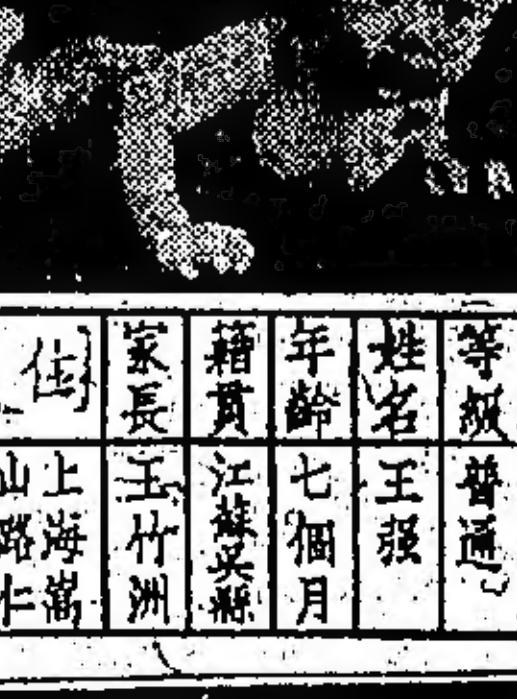 等級 普通
姓名 王強
年齡 七個月
籍貫 江蘇吳縣
家長 王竹洲
住 上海嵩
山路仁